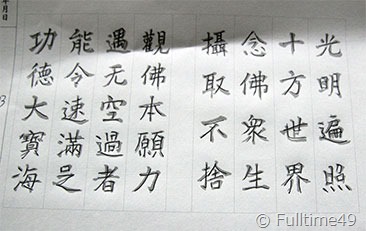 年月日
光明遍照
十方世界
念佛衆生
攝取不捨
觀佛本願力
遇无空過者
能令速滿足
功德大寶海
© Fulltime49